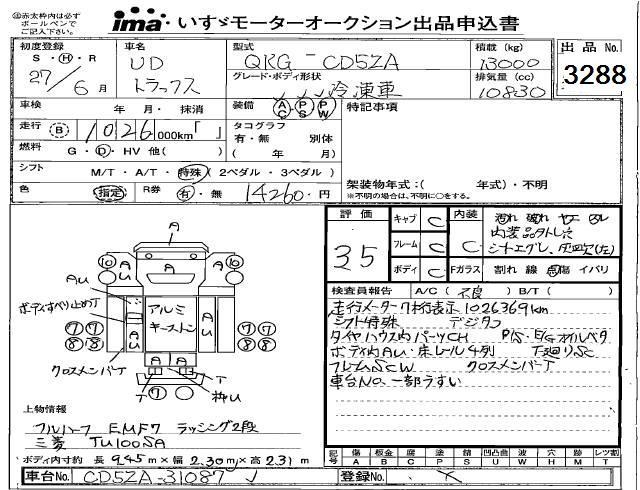 ※赤太枠内は必ず
ボールペンで
ご記入下さい。
ima いすゞモーターオークション出品申込書
初度登録
S・H・R
27/6月
車名
UD
トラックス
型式
QKG-CD5ZA
グレード・ボディ形状
冷凍車
積載(kg)
13000
排気量(cc)
10830
出品No.
3288
車検 年・月・抹消
装備 AC PS PW
特記事項
走行 B 1026 000km「 」
タコグラフ
有・無 別体
( 年 月)
燃料 G・D・HV 他( )
シフト M/T・A/T・特殊 (2ペダル・3ペダル)
色 指定 R券 有・無 14260円
架装物年式:( 年式)・不明
※不明の場合は、不明に○をする。
評価
3.5
キャブ C
フレーム C
ボディ C
内装
C
内装品タトレ穴
シートエグレ、灰皿欠(左)
Fガラス 割れ 線 点傷 イバリ
検査員報告 A/C(不良) B/T( )
走行メーター7桁表示 1026369km
シフト特殊 デジタコ
タイヤハウス内パーツCH P/S・E/Gオイルベタ
ボディ内AU・床レール4列 下廻りSC
フレームSCW クロスメンバーT
車台No.一部うすい
A
A
A
A
A
10
10
AU
ボディすべり止めT
アルミ
キーストン
AU
AU
7 7
8 8
7 7
8 8
A
A
クロスメンバーT
T
T
T
7
枠U
上物情報
フルハーフ EMF7 ラッシング2段
三菱 TU100SA
ボディ内寸約 長 9.45m × 幅 2.30m × 高 2.31m
記号 キズ A 板金 B 腐 C 塗 P 錆 S 凹凸曲 U 波 W 穴 H 跡 M レツ割 T
車台No. CD5ZA-31087
登録No.